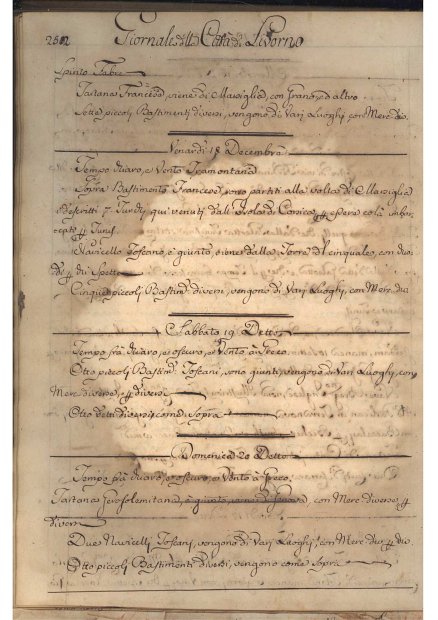 Giornale della Città di Livorno
Tartana Francese, viene di Marsiglia, con Grano, ed altro
Sette piccoli Bastimenti diversi, vengono di Vari Luoghi, con Merc. div.
Venardì 18 Decembre
Tempo chiaro, e Vento Tramontana
Sopra Bastimento Francese, sono partiti alla volta di Marsiglia
7 Turchi, qui venuti dall'Isola di Corsica, essere colà
Tunis
Navicello Toscano, è giunto, viene dalla Torre del Cinquale, con
Cinque piccoli Bastim. diversi, vengono di Vari Luoghi, con Merc. div.
Sabbato 19 Detto
Tempo frà chiaro, e oscuro, e Vento à Greco
Otto piccoli Bastim. Toscani, sono giunti, vengono di Vari Luoghi, con
Merc. diverse, diversi
Otto detti diversi, come Sopra
Domenica 20 Detto
Tempo frà chiaro, e oscuro, e Vento à Greco
Tartana Gerosolemitana, è giunta, viene di Genova, con Merc. diverse,
diversi
Due Navicelli Toscani, vengono di Vari Luoghi, con Merc. div. div.
Otto piccoli Bastimenti diversi, vengono come Sopra